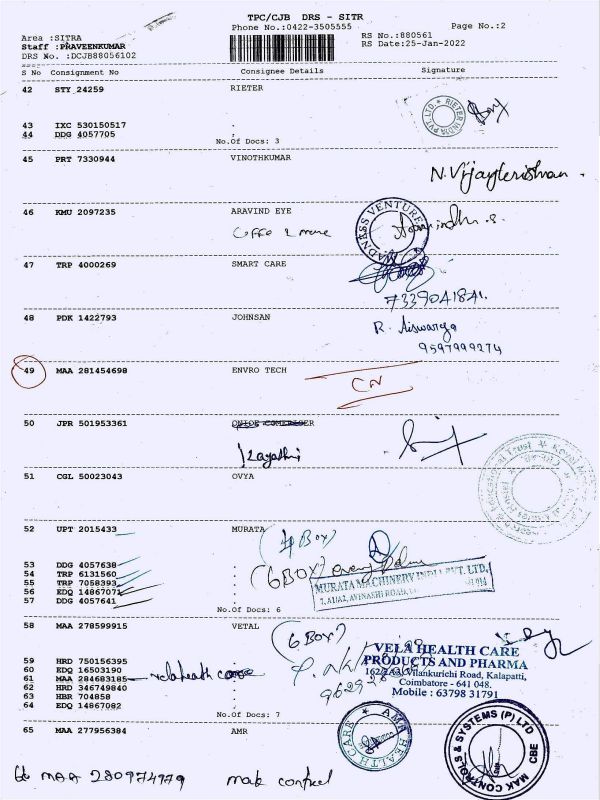 TPC/CJB DRS - SITR
Phone No.:0422-3505555
Page No.:2
Area :SITRA
RS No.:880561
Staff :PRAVEENKUMAR
RS Date:25-Jan-2022
DRS No. :DCJB88056102
S No Consignment No Consignee Details Signature
42 STY 24259 RIETER
RIETER INDIA PVT. LTD.
43 IXC 530150517 .
44 DDG 4057705 .
No.Of Docs: 3
45 PRT 7330944 VINOTHKUMAR
46 KMU 2097235 ARAVIND EYE
47 TRP 4000269 SMART CARE
7339041841.
48 PDK 1422793 JOHNSAN
R. Aiswarya
9597999274
49 MAA 281454698 ENVRO TECH
CN
50 JPR 501953361
51 CGL 50023043 OVYA
52 UPT 2015433 MURATA
53 DDG 4057638 .
54 TRP 6131560 .
55 TRP 7058393 .
56 EDQ 14867072 .
57 DDG 4057641 .
(6 BOX)
MURATA MACHINERY INDIA PVT. LTD.
No.Of Docs: 6
58 MAA 278599915 VETAL
(6 BOX)
59 HRD 750156395 .
60 EDQ 16503190 .
61 MAA 284683185 .
62 HRD 346749840 .
63 HBR 704858 .
64 EDQ 14867082 .
VELA HEALTH CARE
PRODUCTS AND PHARMA
162/2AA1, Vilankurichi Road, Kalapatti,
Coimbatore - 641 048.
Mobile : 63798 31791
No.Of Docs: 7
65 MAA 277956384 AMR
AMR HEALTH CARE
MAK CONTROLS & SYSTEMS (P) LTD
CBE
66 MAA 280974979 mak control